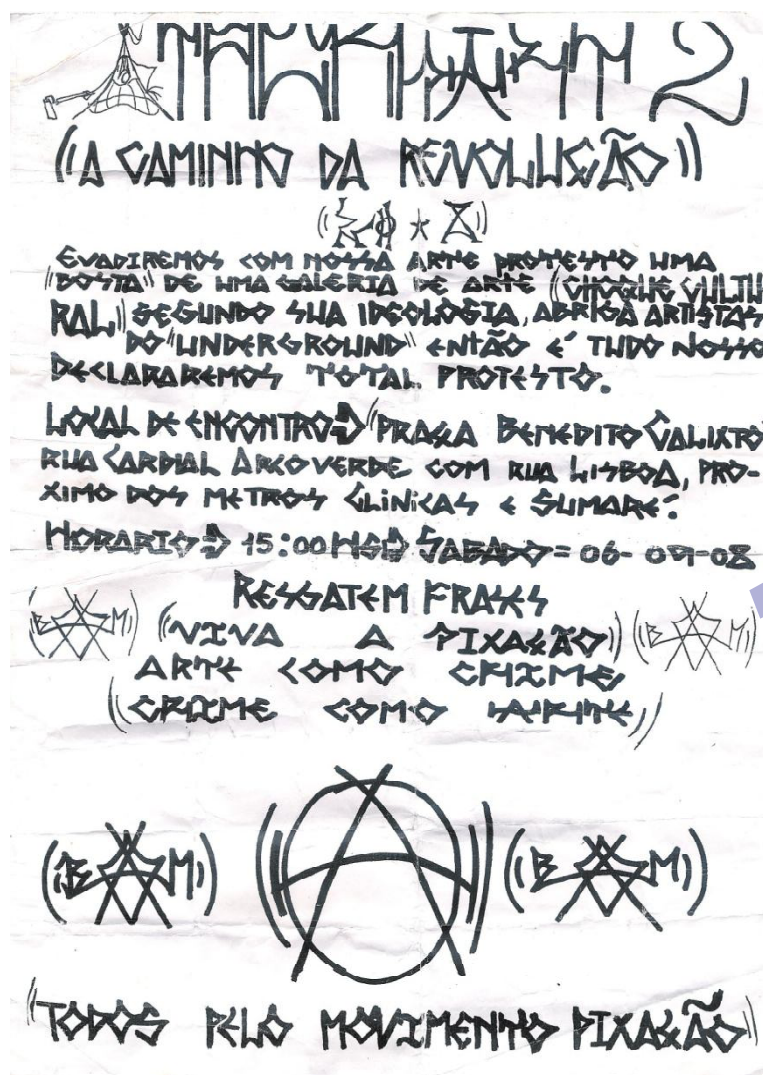 2
"A CAMINHO DA REVOLUÇÃO"
EVADIREMOS COM NOSSA ARTE PROTESTO UMA
"BOSTA" DE UMA GALERIA DE ARTE "CHOQUE CULTU
RAL" SEGUNDO SUA IDEOLOGIA, ABRIGA ARTISTAS
DO "UNDERGROUND" ENTÃO É TUDO NOSSO
DECLARAREMOS TOTAL PROTESTO.
LOCAL DE ENCONTRO => "PRAÇA BENEDITO CALIXTO
RUA CARDIAL ARCOVERDE COM RUA LISBOA, PRO-
XIMO DOS METROS CLiNICAS E SUMARÉ.
HORARIO => 15:00 HS => SABADO = 06-09-08
RESGATEM FRASES
(BAM) "VIVA A PIXAÇÃO" (BAM)
ARTE COMO CRIME,
"CRIME COMO ARTE,,
(BAM) (A) (BAM)
"TODOS PELO MOVIMENTO PIXAÇÃO"